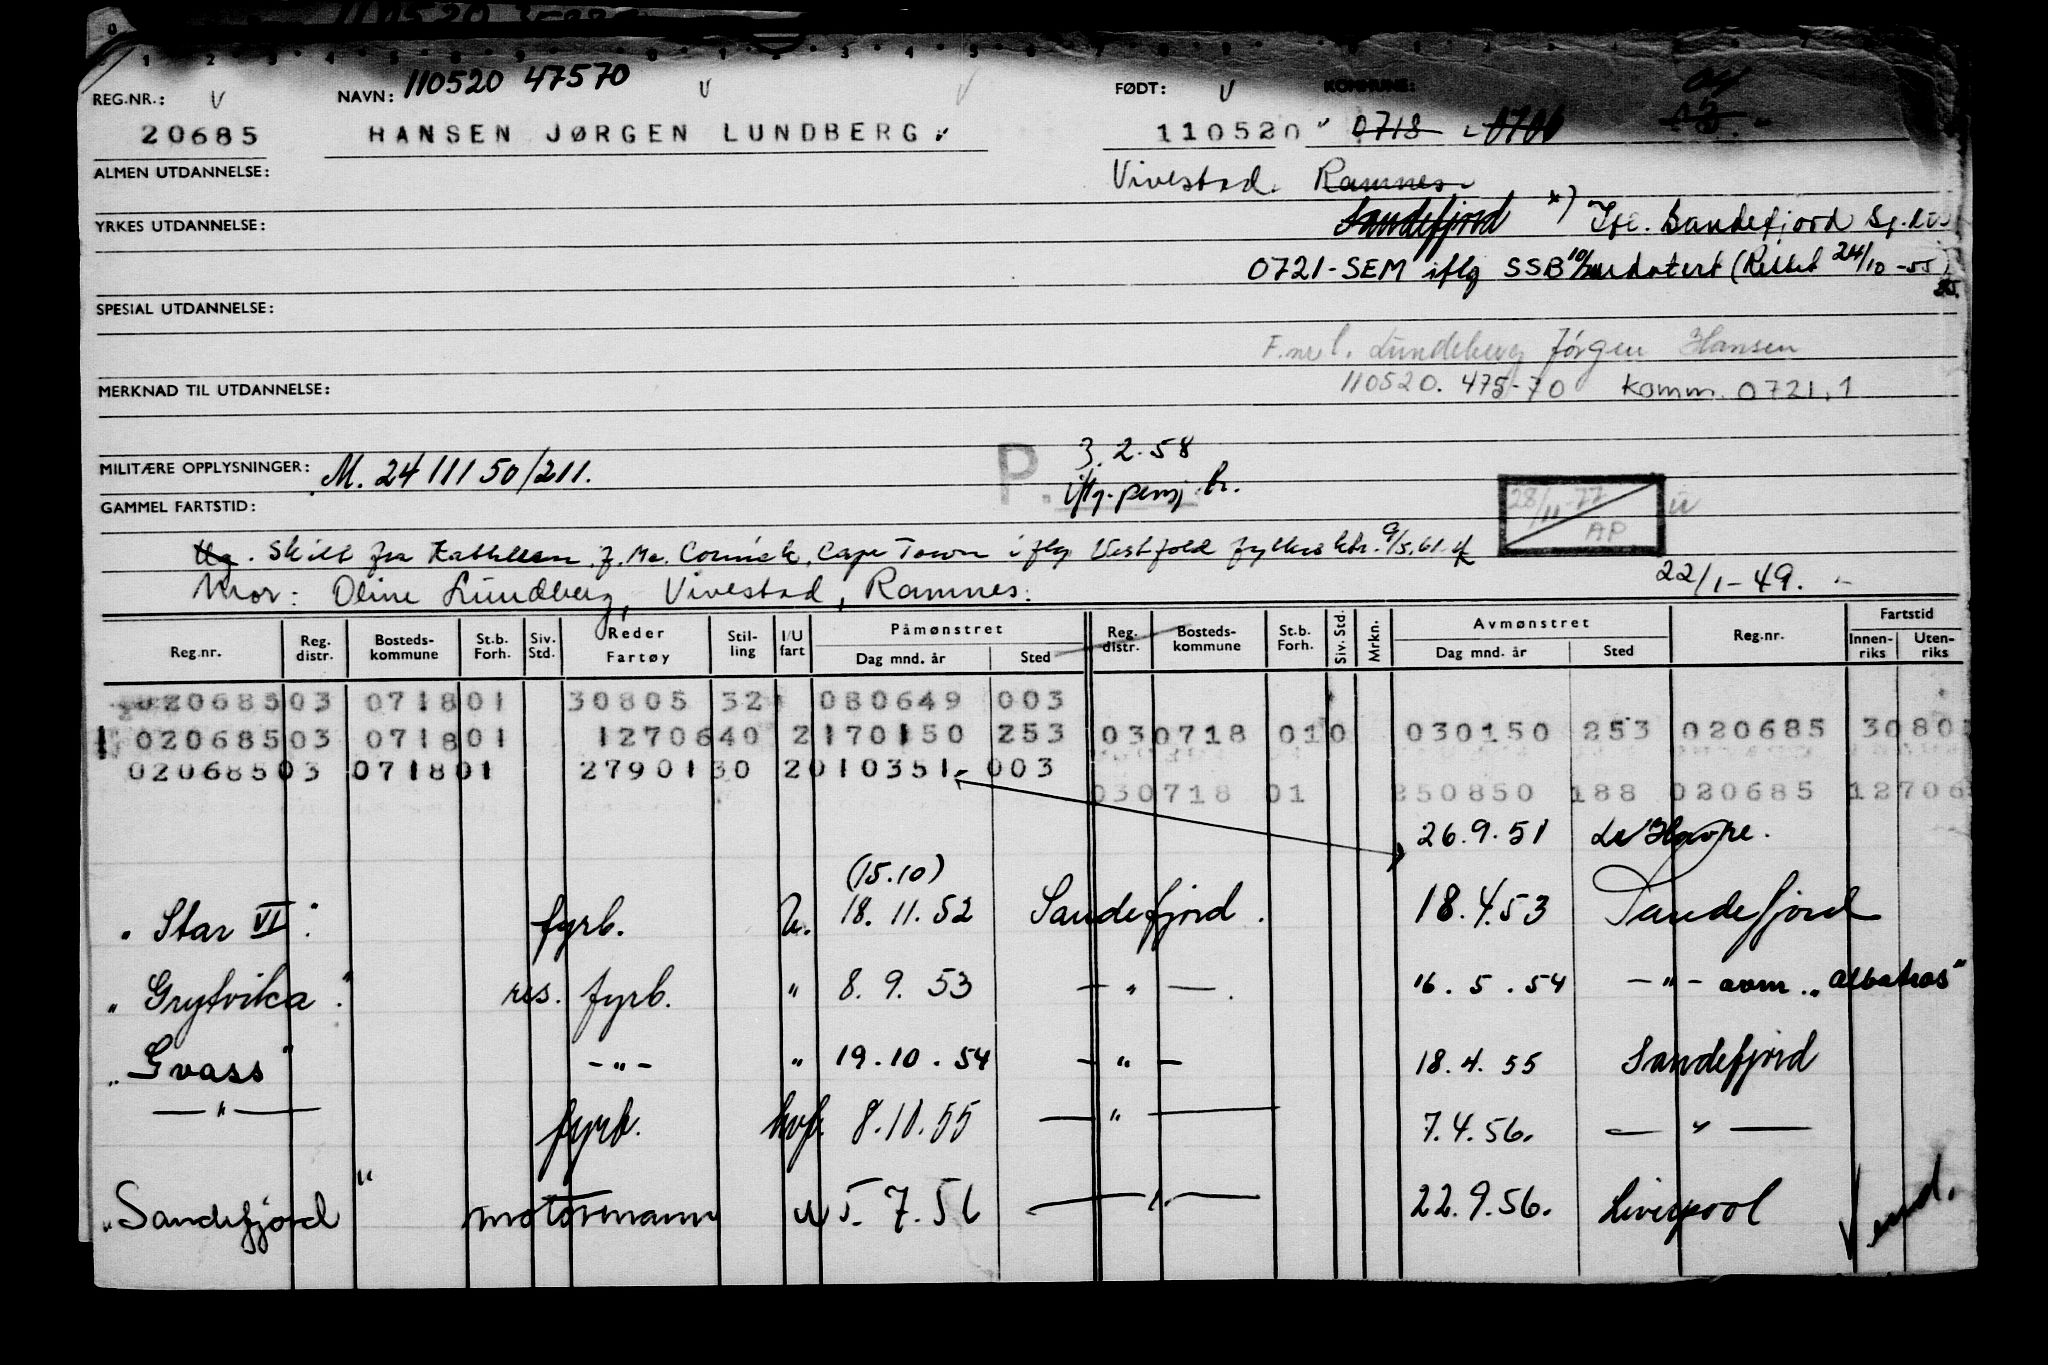 110520 47570
REG.NR.: V NAVN: V V FØDT: V KOMMUNE:
20685 HANSEN JØRGEN LUNDBERG. 110520 0718 0706
ALMEN UTDANNELSE: Vivestad. Ramnes
YRKES UTDANNELSE: Sandefjord *) Ifl. Sandefjord
0721-SEM iflg SSB (Rettet 24/10-55)
SPESIAL UTDANNELSE:
Lundeberg Jørgen Hansen
MERKNAD TIL UTDANNELSE: 110520. 475-70 Komm. 0721.1
MILITÆRE OPPLYSNINGER: M. 24111 50/211. P. 3.2.58
iflg. pensj. br.
GAMMEL FARTSTID: 28/11-77 AP
Skilt fra Kathleen. f. Mc. Cormick, Cape Town iflg Vestfold fylkesktr. 9/5.61.
Mor: Oline Lundberg, Vivestad, Ramnes. 22/1-49.
Reg.nr. Reg. distr. Bosteds- kommune St.b. Forh. Siv. Std. Reder Fartøy Stil- ling I/U fart Påmønstret Dag mnd. år Sted Reg. distr. Bosteds- kommune St.b. Forh. Siv. Std. Mrkn. Avmønstret Dag mnd. år Sted Reg.nr. Fartstid Innen- riks Uten- riks
020685 03 0718 01 30805 32 080649 003
020685 03 0718 01 1270640 2 170150 253 03 0718 01 0 030150 253 020685 3080
020685 03 0718 01 2790130 2 010351 003
030718 01 250850 188 020685 12706
26.9.51 Le Havre.
(15.10)
"Star VI". fyrb. U. 18. 11. 52 Sandefjord. 18.4.53 Sandefjord
"Grytvika". res. fyrb. " 8. 9. 53 — " —. 16. 5. 54 — " — avm. "Albatros"
"Gvass" — " — " 19. 10. 54 — " — 18. 4. 55 Sandefjord
— " — fyrb. hvf. 8.10.55 — " — 7.4.56. — " —
"Sandefjord" motormann U 5. 7. 56 — " — 22.9.56. Liverpool